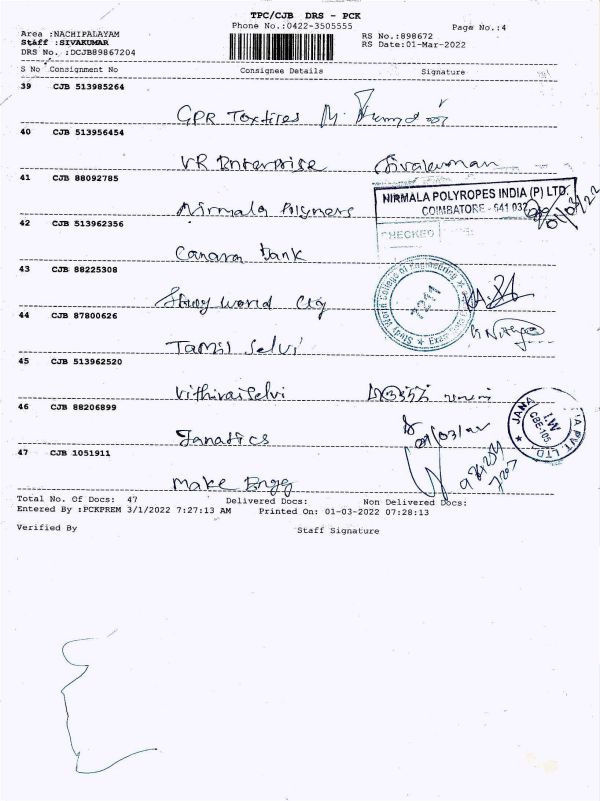 TPC/CJB DRS - PCK
Phone No.:0422-3505555
Page No.:4
Area :NACHIPALAYAM
Staff :SIVAKUMAR
DRS No. :DCJB89867204
RS No.:898672
RS Date:01-Mar-2022
S No Consignment No Consignee Details Signature
39 CJB 513985264
GPR Textires M.
40 CJB 513956454
VR Enterprise Sivakumar
41 CJB 88092785
Nirmala Polymers
NIRMALA POLYROPES INDIA (P) LTD.
COIMBATORE - 641 032
CHECKED
01/03/22
42 CJB 513962356
Canara Bank
43 CJB 88225308
Study World Clg
Study World College of Engineering
7211
44 CJB 87800626
Tamil Selvi
45 CJB 513962520
Vithiraiselvi
46 CJB 88206899
Janatics
01/03/22
JANA
I.W
CBE-105
PVT. LTD
47 CJB 1051911
Make Engg
Total No. Of Docs: 47 Delivered Docs: Non Delivered Docs:
Entered By :PCKPREM 3/1/2022 7:27:13 AM Printed On: 01-03-2022 07:28:13
Verified By Staff Signature